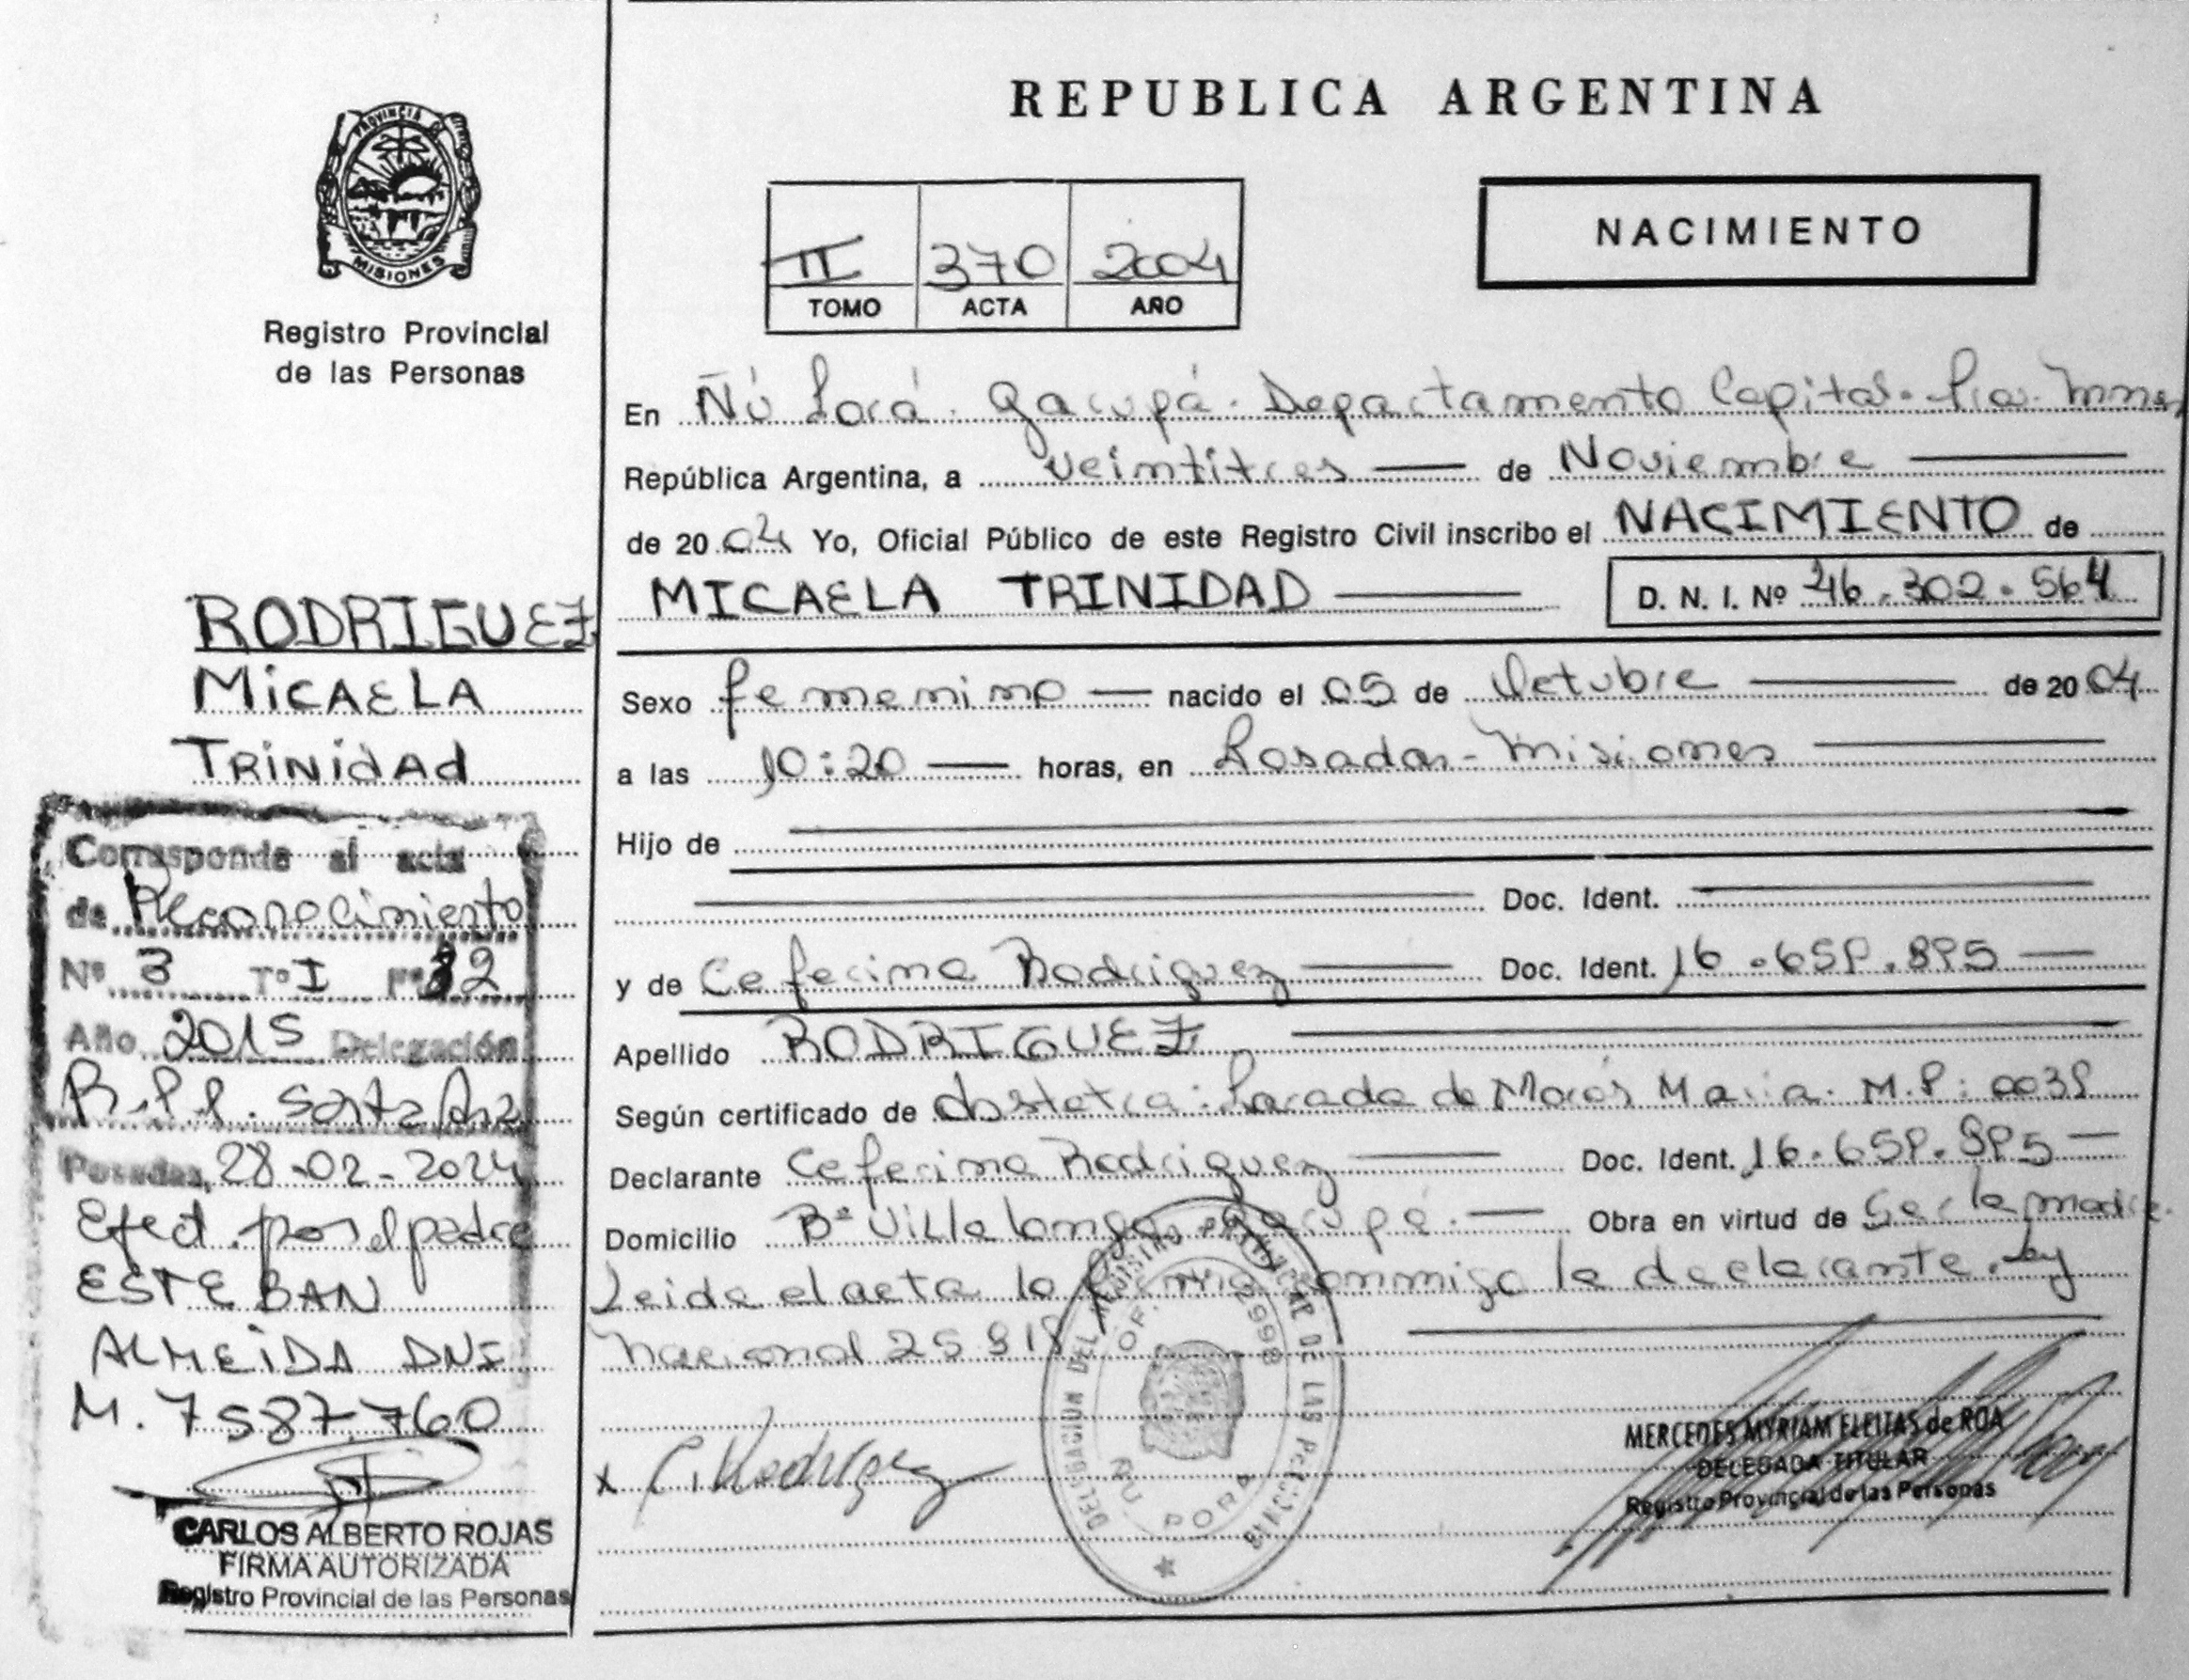 PROVINCIA DE
MISIONES
Registro Provincial
de las Personas
RODRIGUEZ
MiCAELA
TRiNidAd
Corresponde al acta
de Reconocimiento
Nº 3 Tº I Fº 32
Año 2015 Delegación
R.P.P. Santa Ana
Posadas, 28-02-2024
Efect. por el padre
ESTEBAN
ALMEiDA DNI
M. 7587.760
CARLOS ALBERTO ROJAS
FIRMA AUTORIZADA
Registro Provincial de las Personas
REPUBLICA ARGENTINA
II 370 2004
TOMO ACTA AÑO
NACIMIENTO
En Ñú Porá - Garupá - Departamento Capital - Pia. Mnes
República Argentina, a veintitres de Noviembre
de 2004 Yo, Oficial Público de este Registro Civil inscribo el NACIMIENTO de
MICAELA TRINIDAD D. N. I. Nº 46.302.564
Sexo femenino nacido el 05 de Octubre de 2004
a las 10:20 horas, en Posadas - Misiones
Hijo de
Doc. Ident.
y de Ceferina Rodriguez Doc. Ident. 16.659.895
Apellido RODRIGUEZ
Según certificado de obstetra: Parada de Maria M.P: 0039
Declarante Ceferina Rodriguez Doc. Ident. 16.659.895
Domicilio Bº Villalonga - Garupá - Obra en virtud de Ser la madre.
Leida el acta la firma conmigo la declarante. Ley
Nacional 25 818
x C. Rodriguez
DELEGACION DEL REGISTRO PROVINCIAL DE LAS PERSONAS
OF. 2998
ÑU PORA
MERCEDES MYRIAM FLEITAS de ROA
DELEGADA TITULAR
Registro Provincial de las Personas